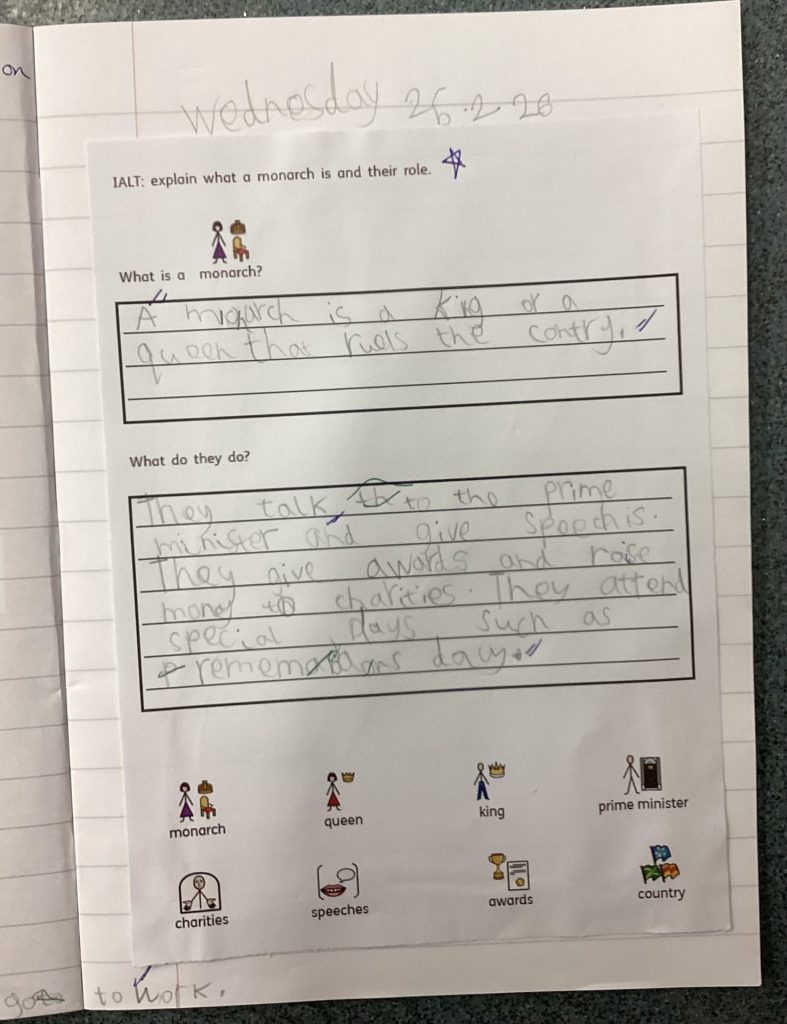 on
Wednesday 26.2.20
IALT: explain what a monarch is and their role.
What is a monarch?
A monarch is a king or a
queen that ruels the contry.
What do they do?
They talk to the prime
minister and give speechis.
They give awords and roise
money to charities. They attend
special days such as
rememberans day.
monarch queen king prime minister
charities speeches awards country
to work.